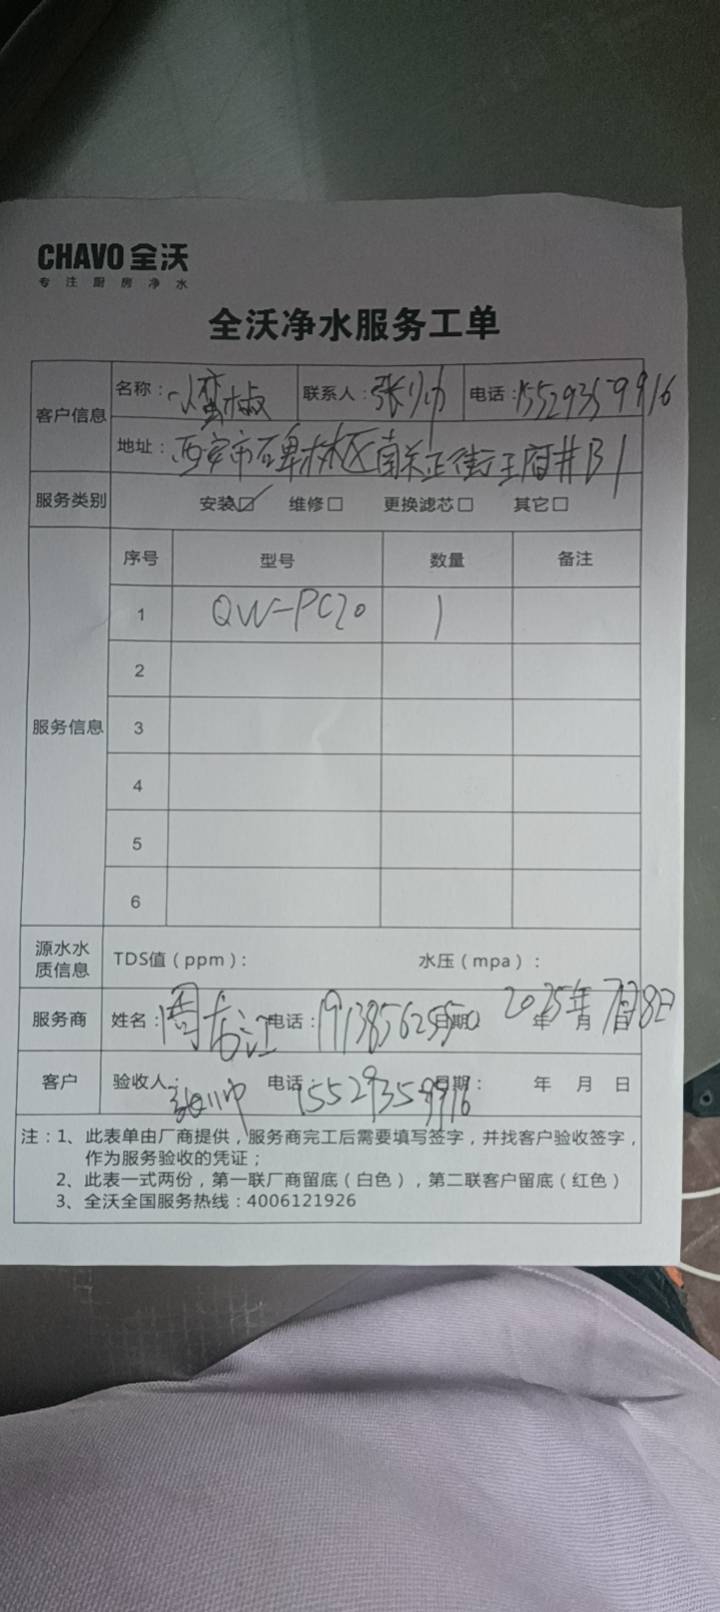 CHAVO 全沃
专注厨房净水
全沃净水服务工单
客户信息 名称：小蛮椒 联系人：张小帅 电话：15529359916
地址：西安市碑林区南关正街王府井B1
服务类别 安装☑ 维修□ 更换滤芯□ 其它□
服务信息 序号 型号 数量 备注
1 QW-PC20 1
2
3
4
5
6
源水水质信息 TDS值（ppm）： 水压（mpa）：
服务商 姓名：周龙江 电话： 日期： 2025年7月8日 年 月 日
客户 验收人： 电话 15529359916 日期： 年 月 日
注：1、此表单由厂商提供，服务商完工后需要填写签字，并找客户验收签字，
作为服务验收的凭证；
2、此表一式两份，第一联厂商留底（白色），第二联客户留底（红色）
3、全沃全国服务热线：4006121926